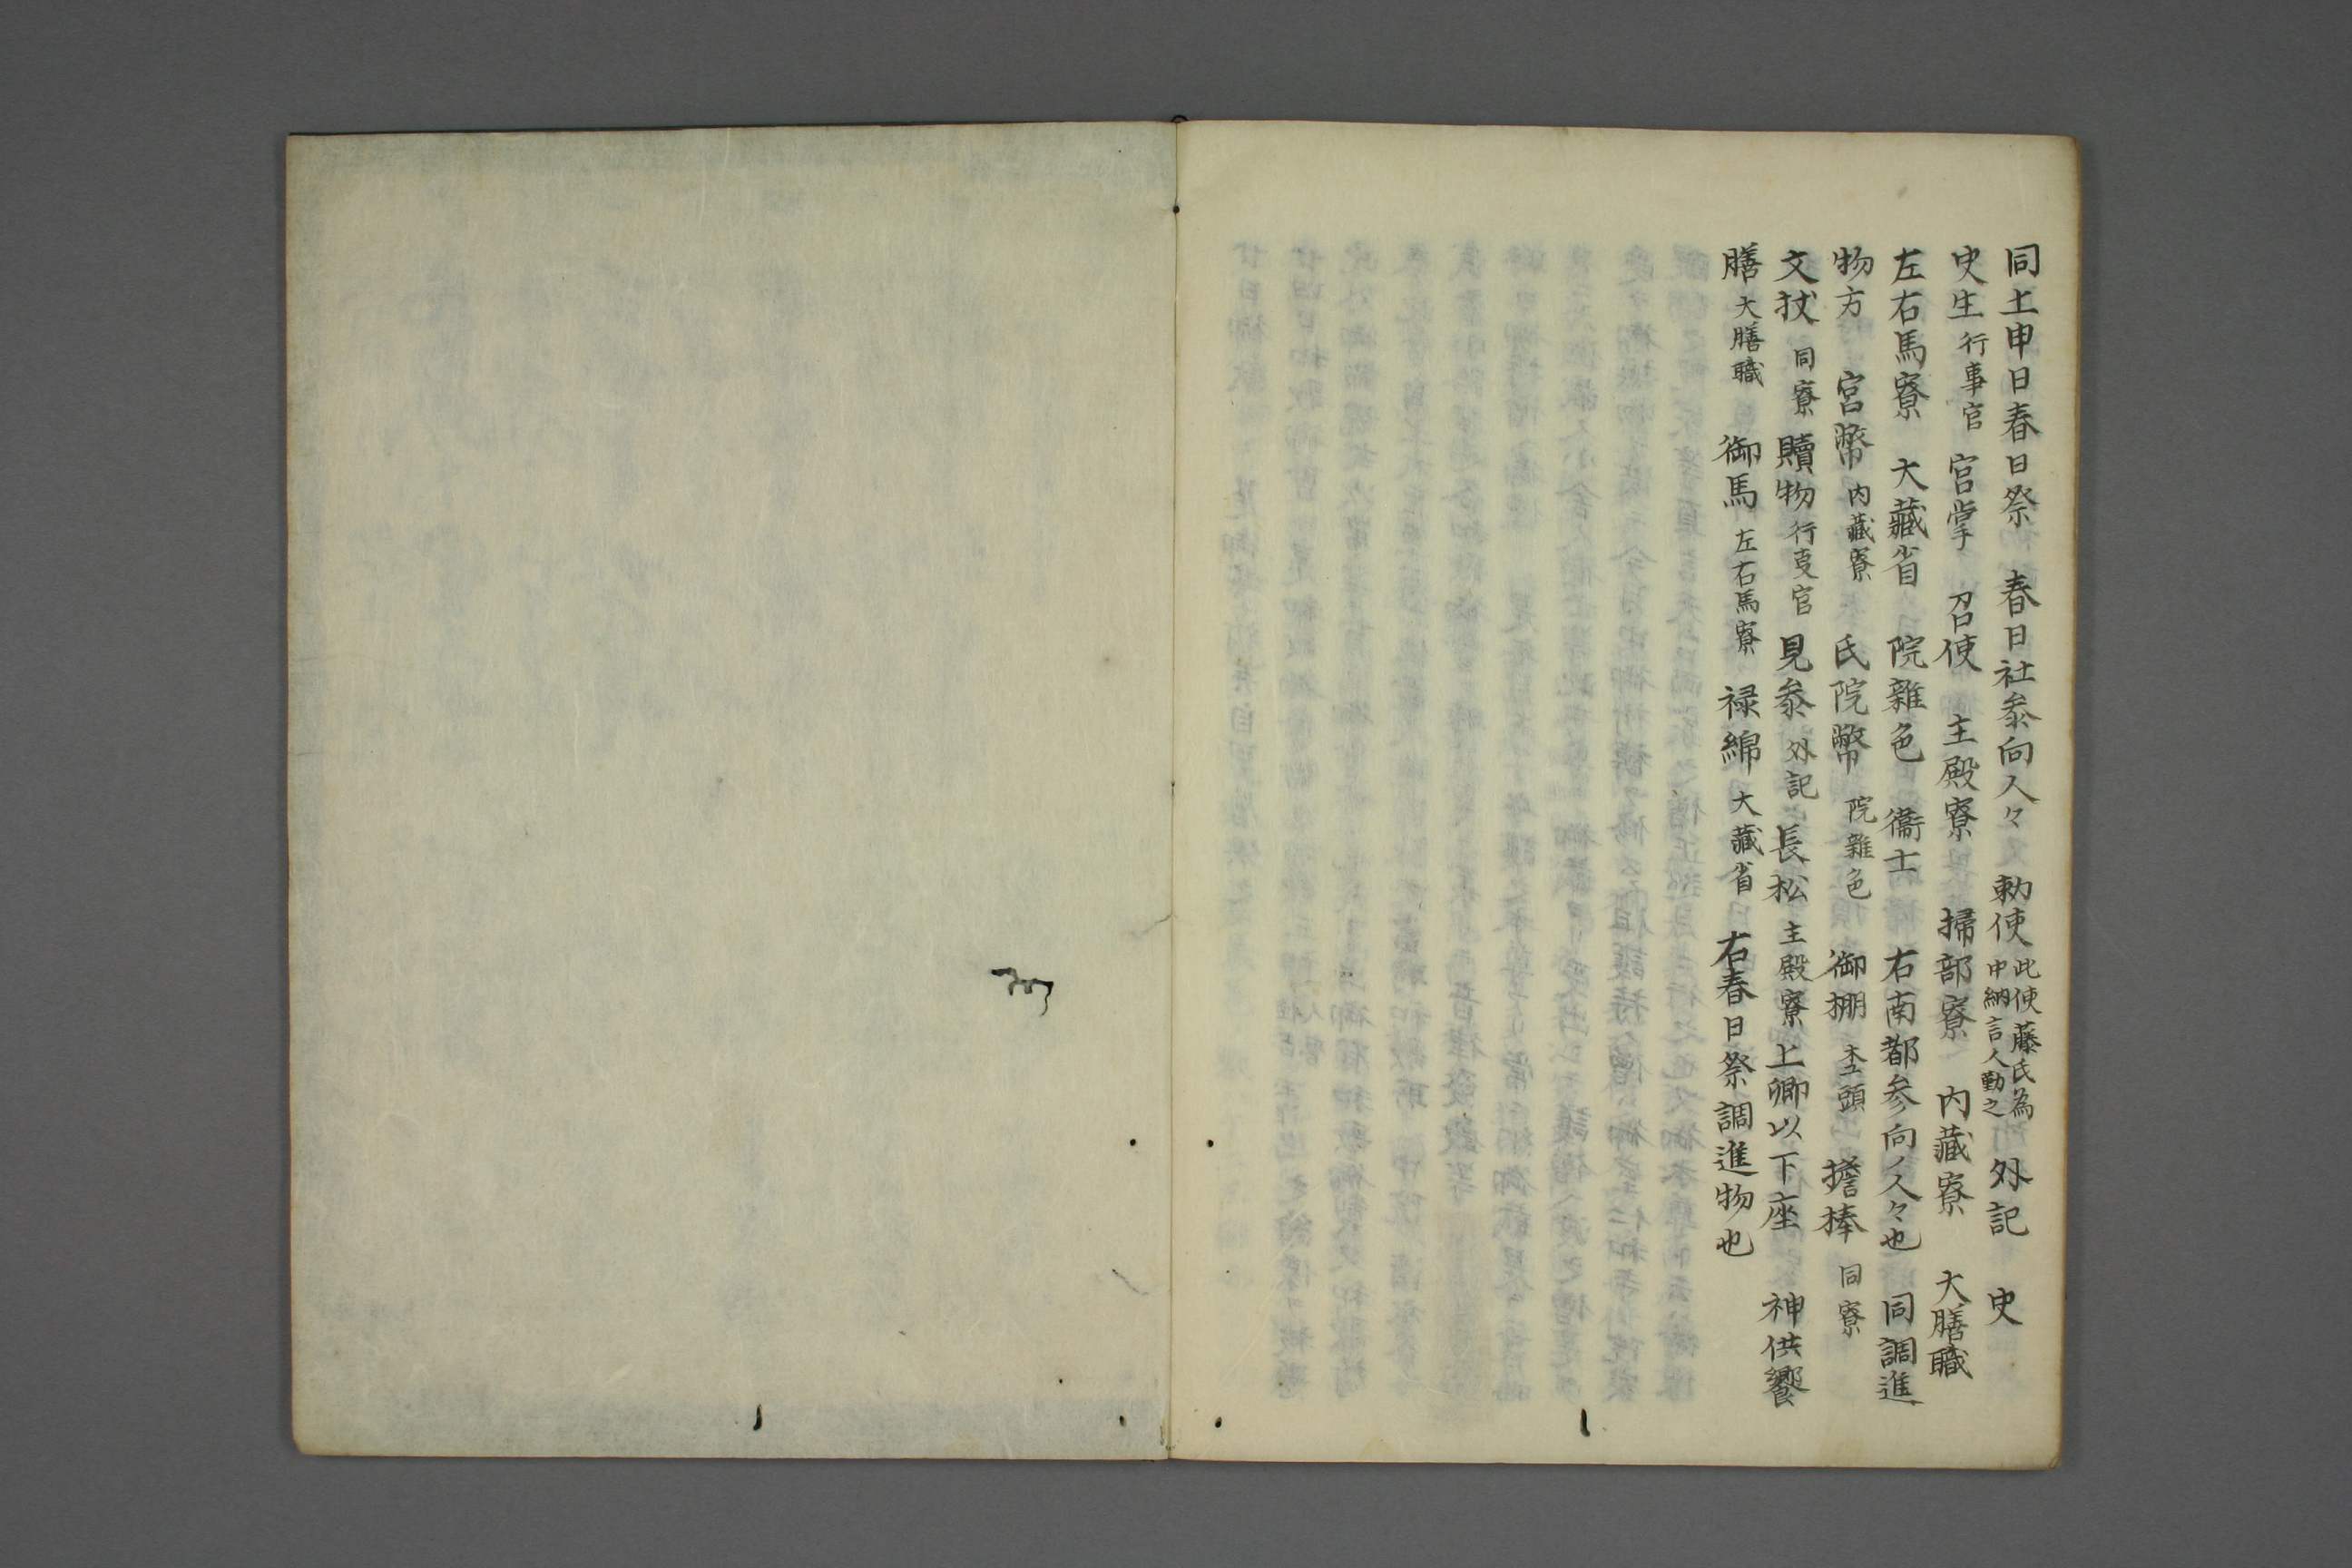 同上申日春日祭　春日社叅向人々　勅使此使藤氏為中納言人勤之　外記　史
史生行事官　宮掌　召使　主殿寮　掃部寮　内藏寮　大膳職
左右馬寮　大藏省　院雜色　衞士　右南都参向ノ人々也　同調進
物方　宮幣内藏寮　氏院幣院雜色　御棚木工頭　擔棒同寮
文杖同寮　贖物行㕝官　見叅外記　長松主殿寮　上卿以下座　神供饗
膳大膳職　御馬左右馬寮　禄綿大藏省　右春日祭調進物也